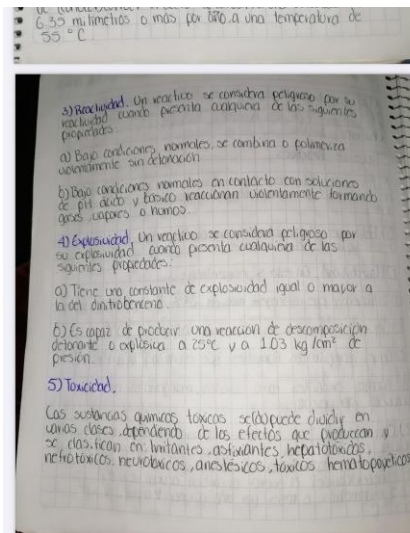 6.35 milímetros o más por año a una temperatura de
55 °C.
3) Reactividad. Un reactivo se considera peligroso por su
reactividad cuando presenta cualquiera de las siguientes
propiedades
a) Bajo condiciones normales, se combina o polimeriza
violentamente sin detonación
b) Bajo condiciones normales en contacto con soluciones
de pH ácido y básico reaccionan violentamente formando
gases, vapores o humos.
4) Explosividad. Un reactivo se considera peligroso por
su explosividad cuando presenta cualquiera de las
siguientes propiedades:
a) Tiene una constante de explosividad igual o mayor a
la del dinitrobenceno.
b) Es capaz de producir una reacción de descomposición
detonante o explosiva a 25°C y a 1.03 kg/cm² de
presión.
5) Toxicidad.
Las sustancias químicas tóxicas se puede dividir en
varias clases, dependiendo de los efectos que produzcan y
se clasifican en: Irritantes, asfixiantes, hepatotóxicos,
nefrotóxicos, neurotóxicos, anestésicos, tóxicos hematopoyéticos